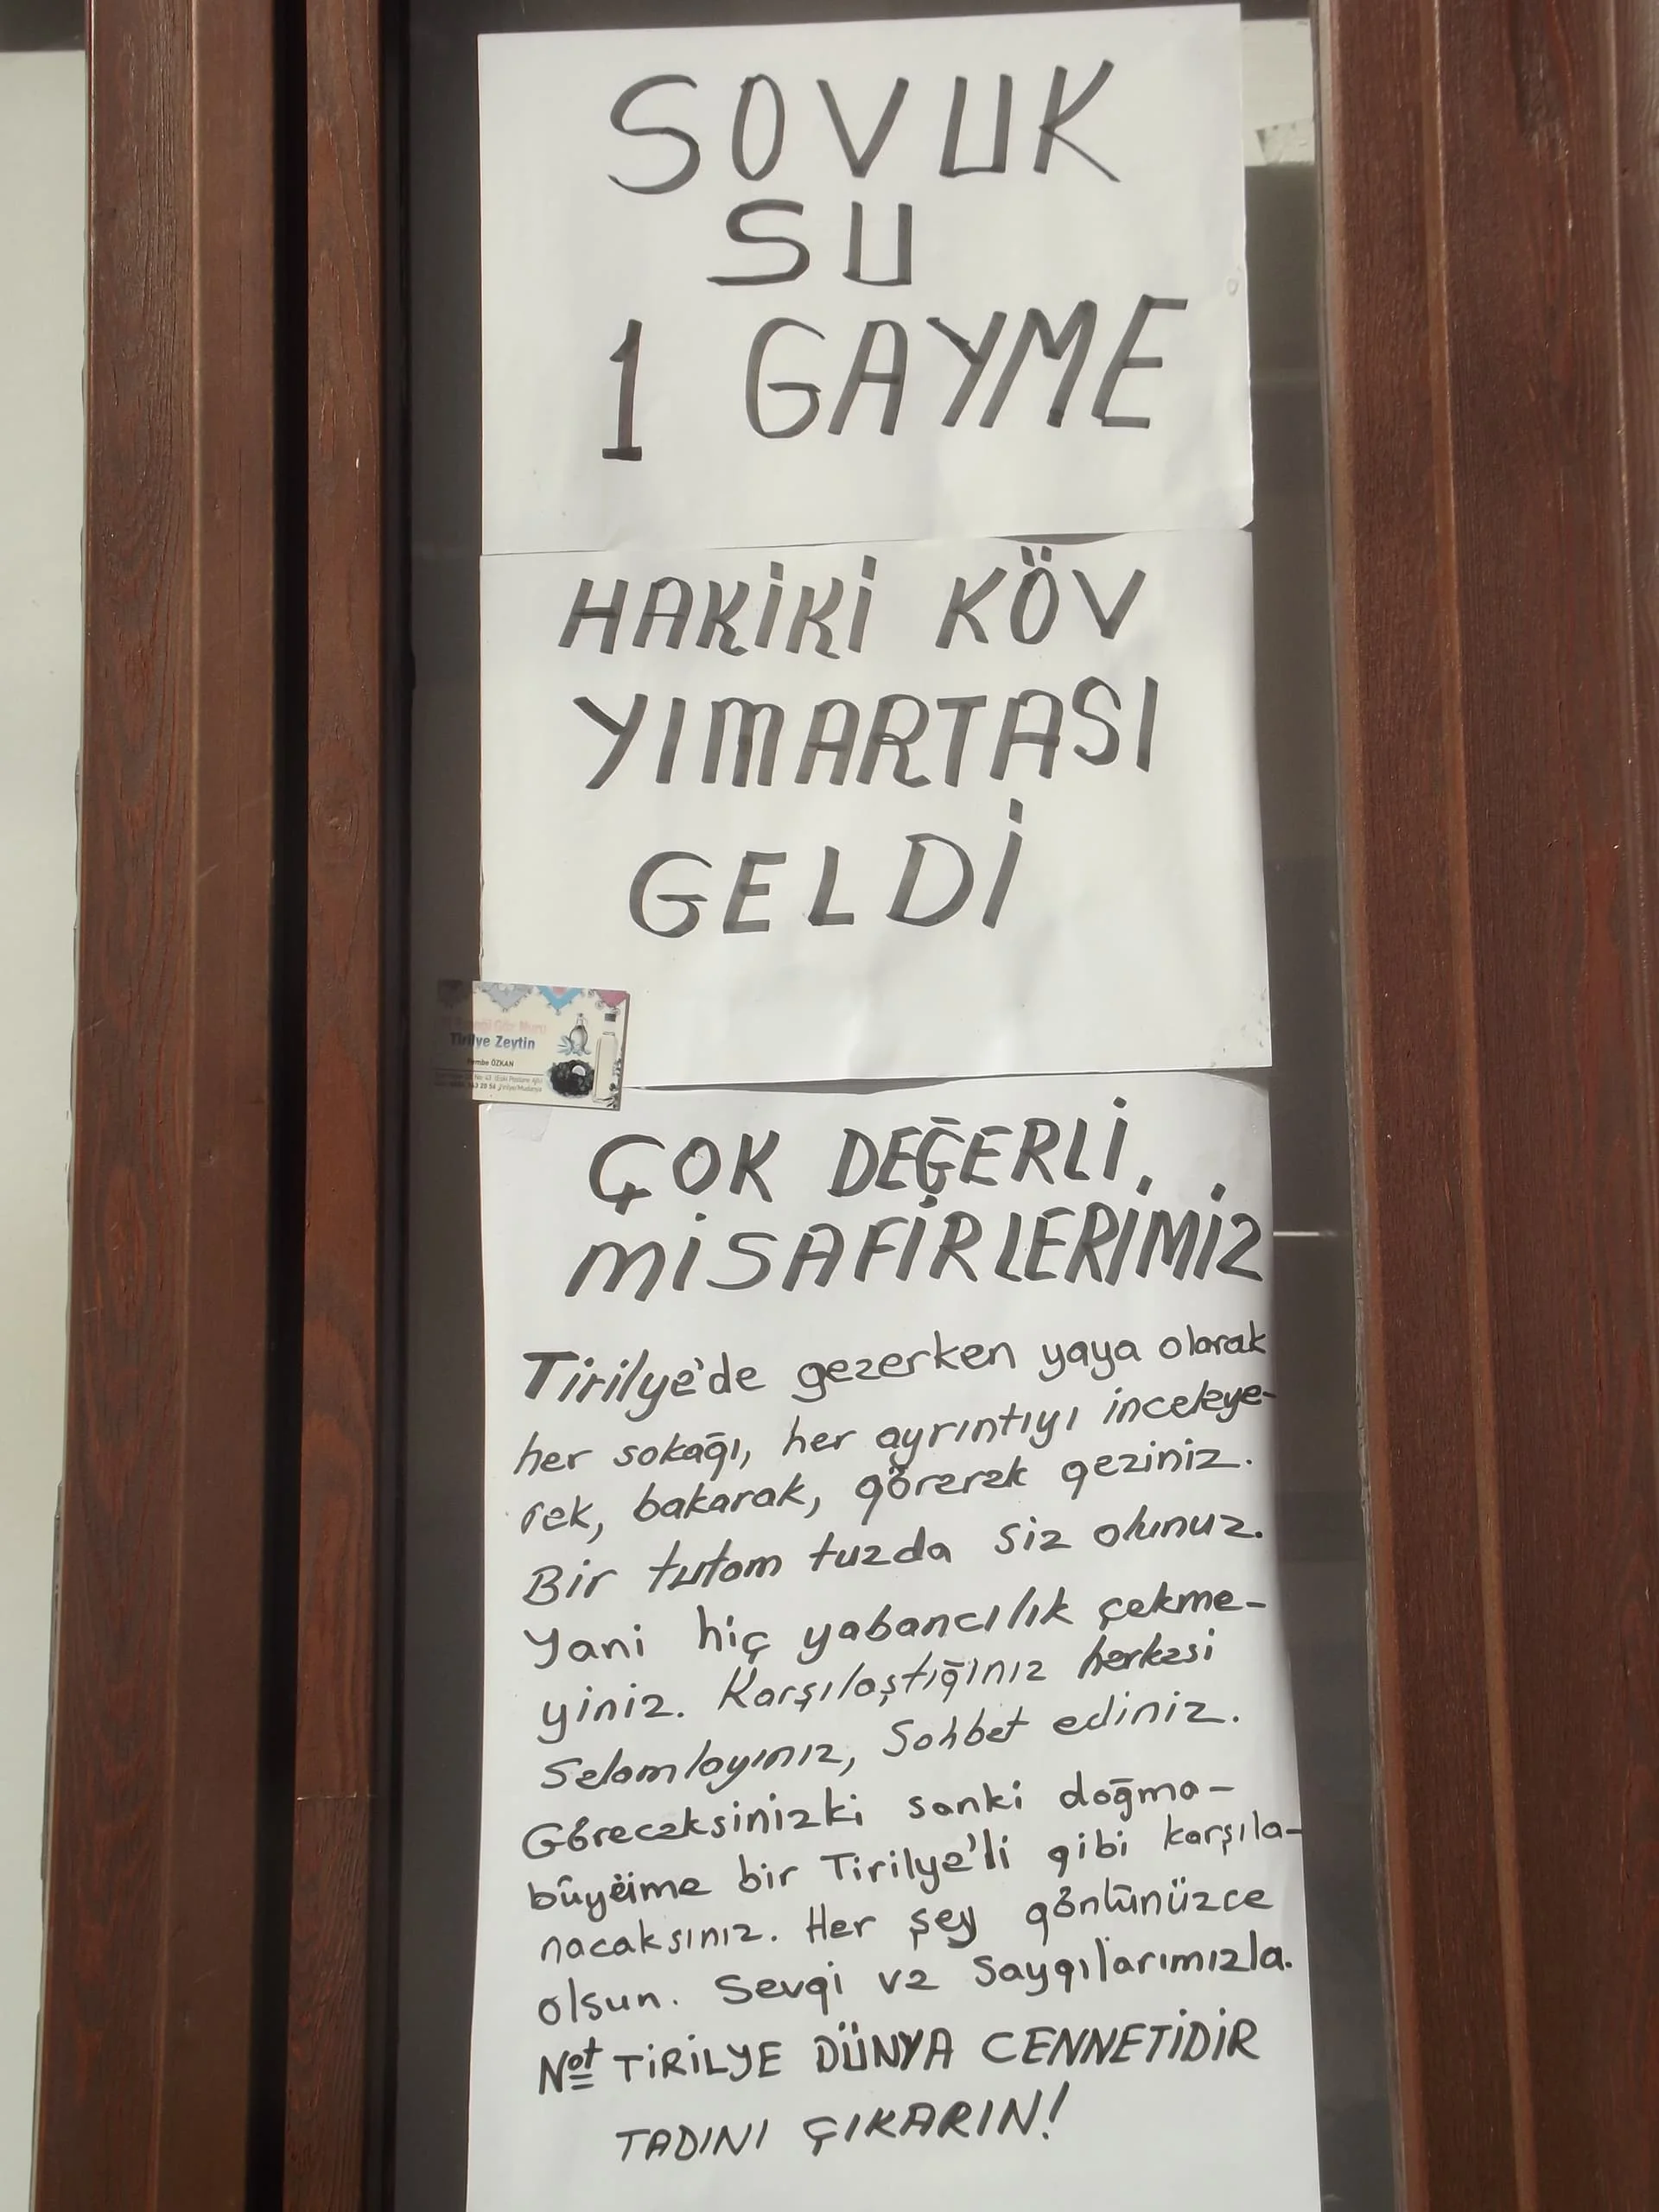 SOVUK
SU
1 GAYME
HAKİKİ KÖV
YIMARTASI
GELDİ
Göz Nuru
Tirilye Zeytin
ÖZKAN
ÇOK DEĞERLİ
MİSAFİRLERİMİZ
Tirilye'de gezerken yaya olarak
her sokağı, her ayrıntıyı inceleye-
rek, bakarak, görerek geziniz.
Bir tutam tuzda siz olunuz.
Yani hiç yabancılık çekme-
yiniz. Karşılaştığınız herkesi
Selamlayınız, Sohbet ediniz.
Göreceksinizki sanki doğma-
büyüme bir Tirilye'li gibi karşıla-
nacaksınız. Her şey gönlünüzce
olsun. Sevgi ve Saygılarımızla.
Not TİRİLYE DÜNYA CENNETİDİR
TADINI ÇIKARIN!